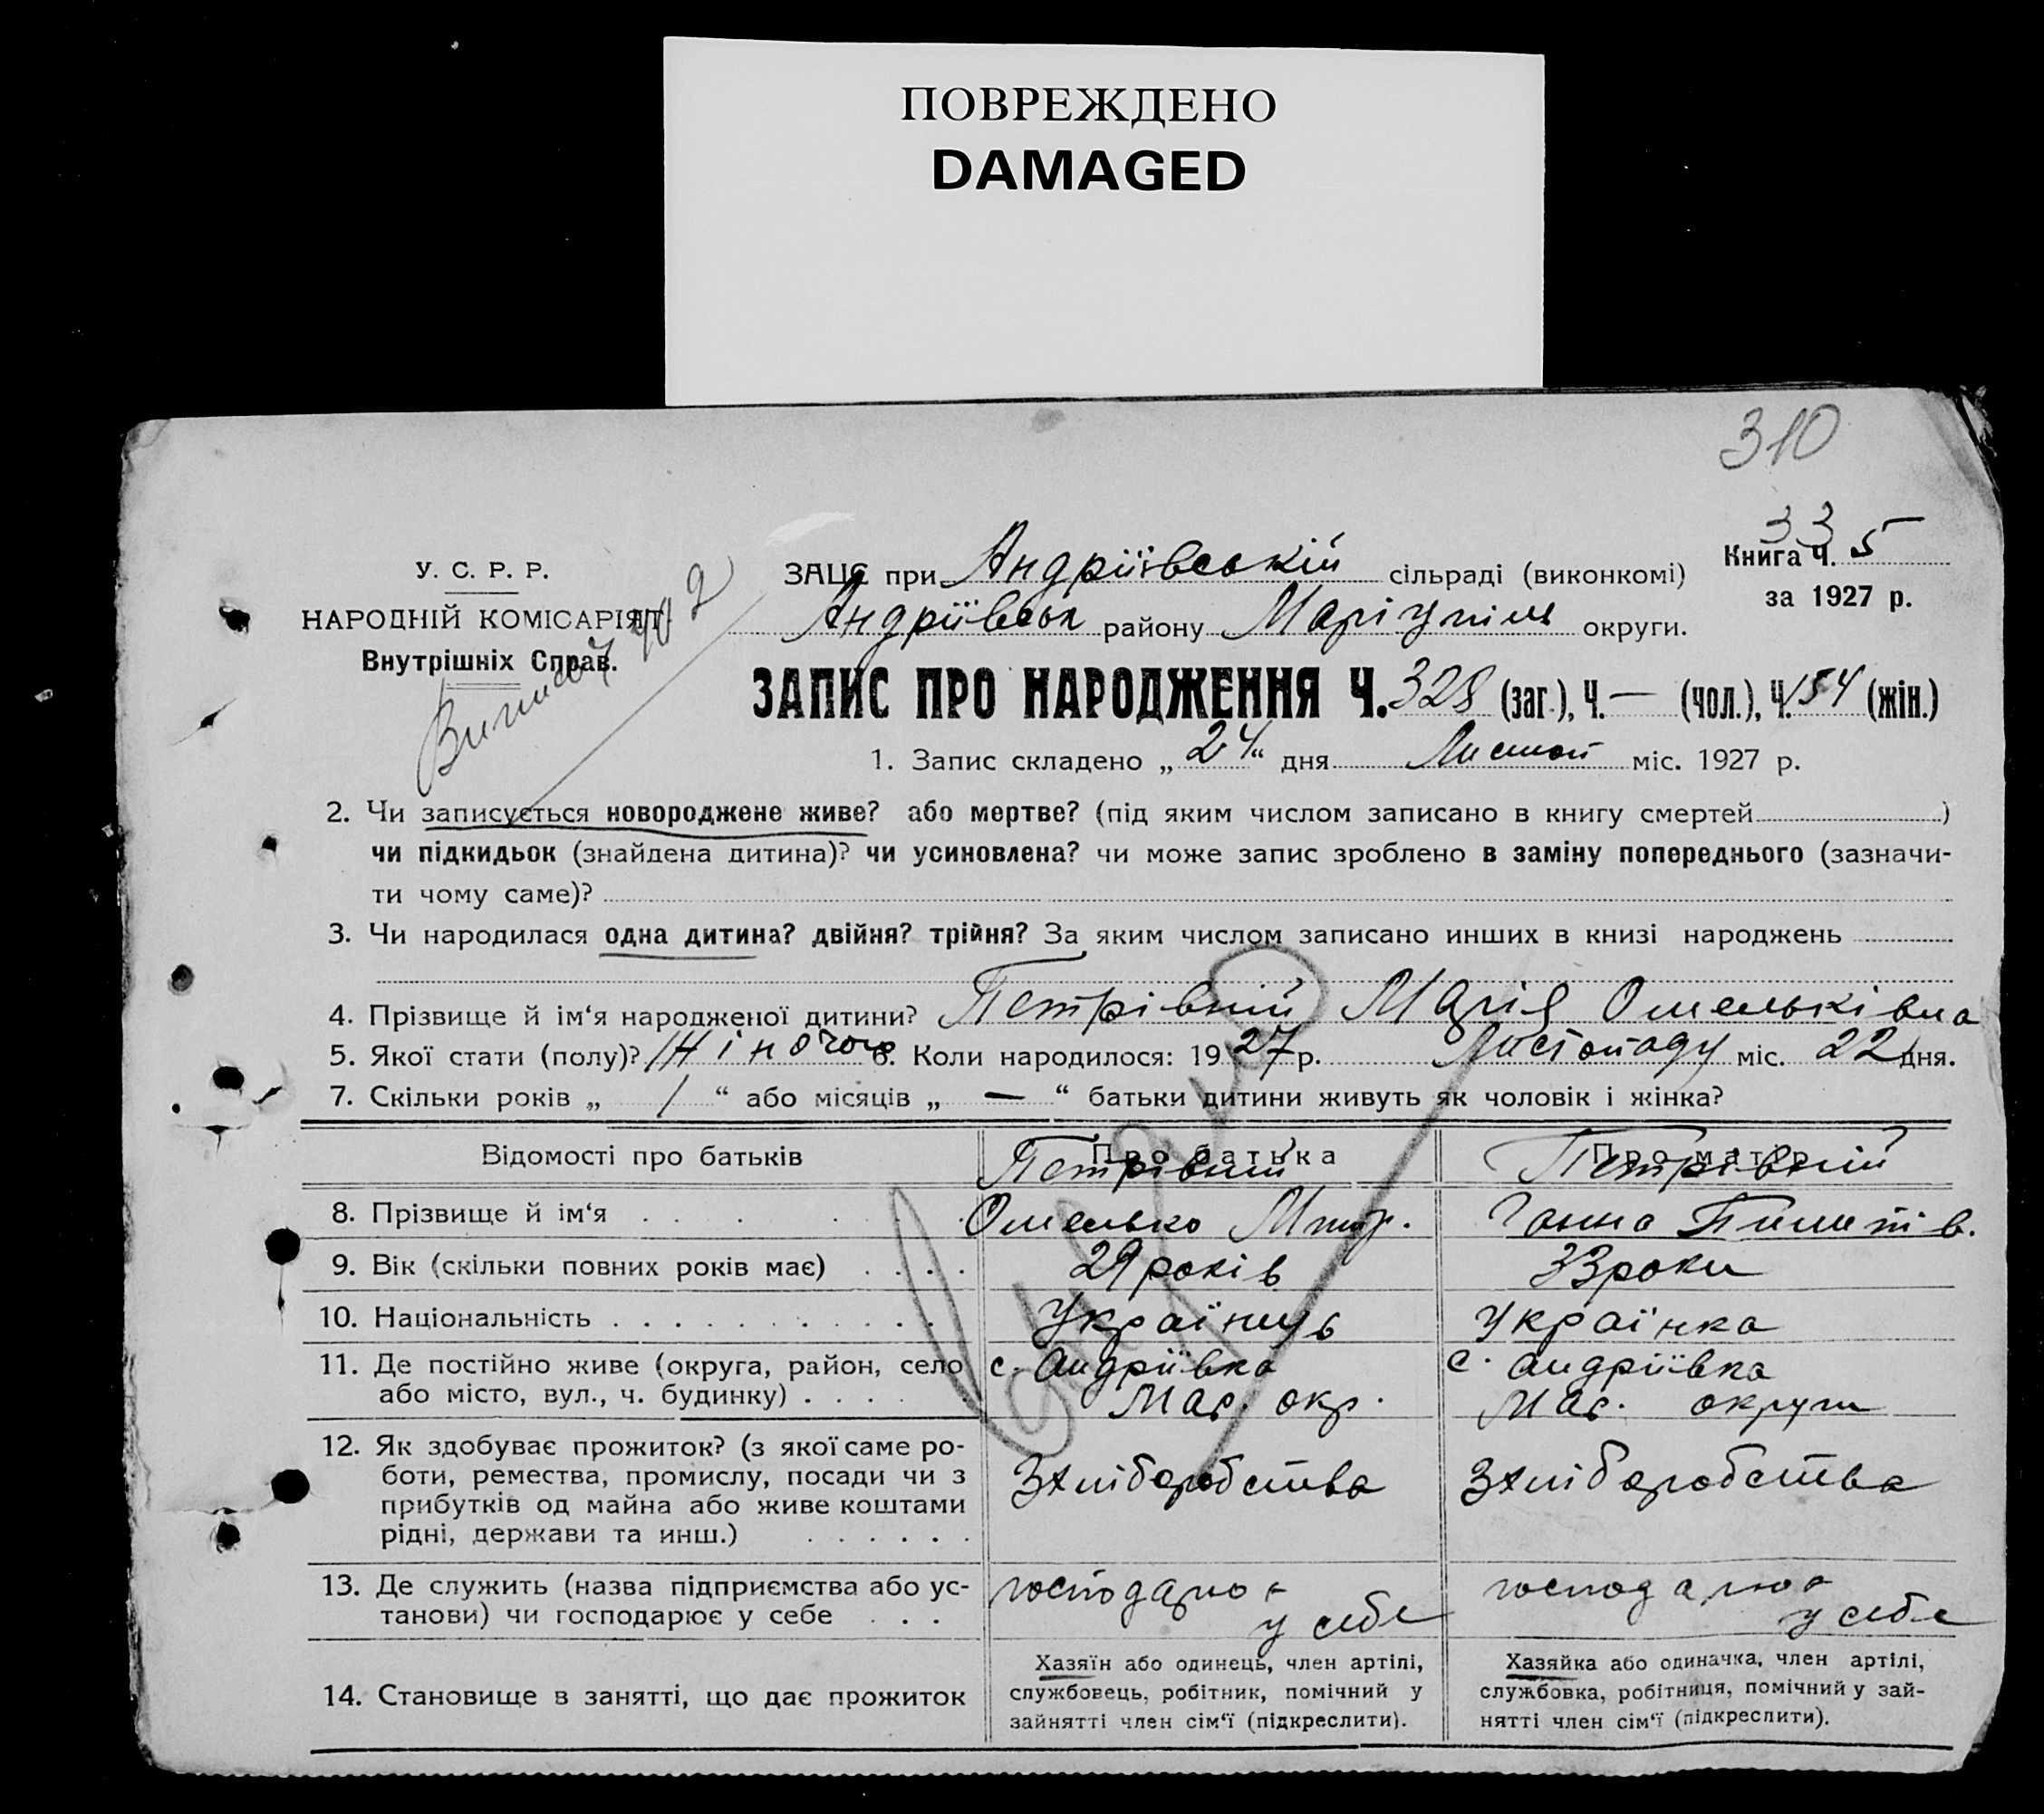 ПОВРЕЖДЕНО
DAMAGED
310
33
У. С. Р. Р.
НАРОДНІЙ КОМІСАРІЯТ
Внутрішніх Справ.
ЗАЦС при Андріївській сільраді (виконкомі)
Книга Ч. 5
за 1927 р.
Андріївськ району Маріупіль округи.
ЗАПИС ПРО НАРОДЖЕННЯ Ч. 328 (заг.), Ч. — (чол.), Ч. 154 (жін.)
1. Запис складено „24“ дня Листоп міс. 1927 р.
2. Чи записується новороджене живе? або мертве? (під яким числом записано в книгу смертей)
чи підкидьок (знайдена дитина)? чи усиновлена? чи може запис зроблено в заміну попереднього (зазначи-
ти чому саме)?
3. Чи народилася одна дитина? двійня? трійня? За яким числом записано инших в книзі народжень
4. Прізвище й ім‘я народженої дитини? Петрівній Марія Омельківна
5. Якої стати (полу)? Жіночою 6. Коли народилося: 1927 р. Листопаду міс. 22 дня.
7. Скільки років „ 1 “ або місяців „ — “ батьки дитини живуть як чоловік і жінка?
Відомості про батьків Про батька Про матір
Петрівній Петрівній
8. Прізвище й ім‘я . . . . . . Омелько Митр. Ганна
9. Вік (скільки повних років має) . . . . 29 років 33 роки
10. Національність . . . . . . . . . . . Українець Українка
11. Де постійно живе (округа, район, село с. Андріївка с. Андріївка
або місто, вул., ч. будинку) . . . . Мар. окр. Мар. округи
12. Як здобуває прожиток? (з якої саме ро-
боти, ремества, промислу, посади чи з З хліборобства З хліборобства
прибутків од майна або живе коштами
рідні, держави та инш.) . . . . . .
13. Де служить (назва підприємства або ус- господарює господарює
танови) чи господарює у себе . . . у себе у себе
14. Становище в занятті, що дає прожиток
Хазяїн або одинець, член артілі,
службовець, робітник, помічний у
зайнятті член сім‘ї (підкреслити).
Хазяйка або одиначка, член артілі,
службовка, робітниця, помічний у зай-
нятті член сім‘ї (підкреслити).